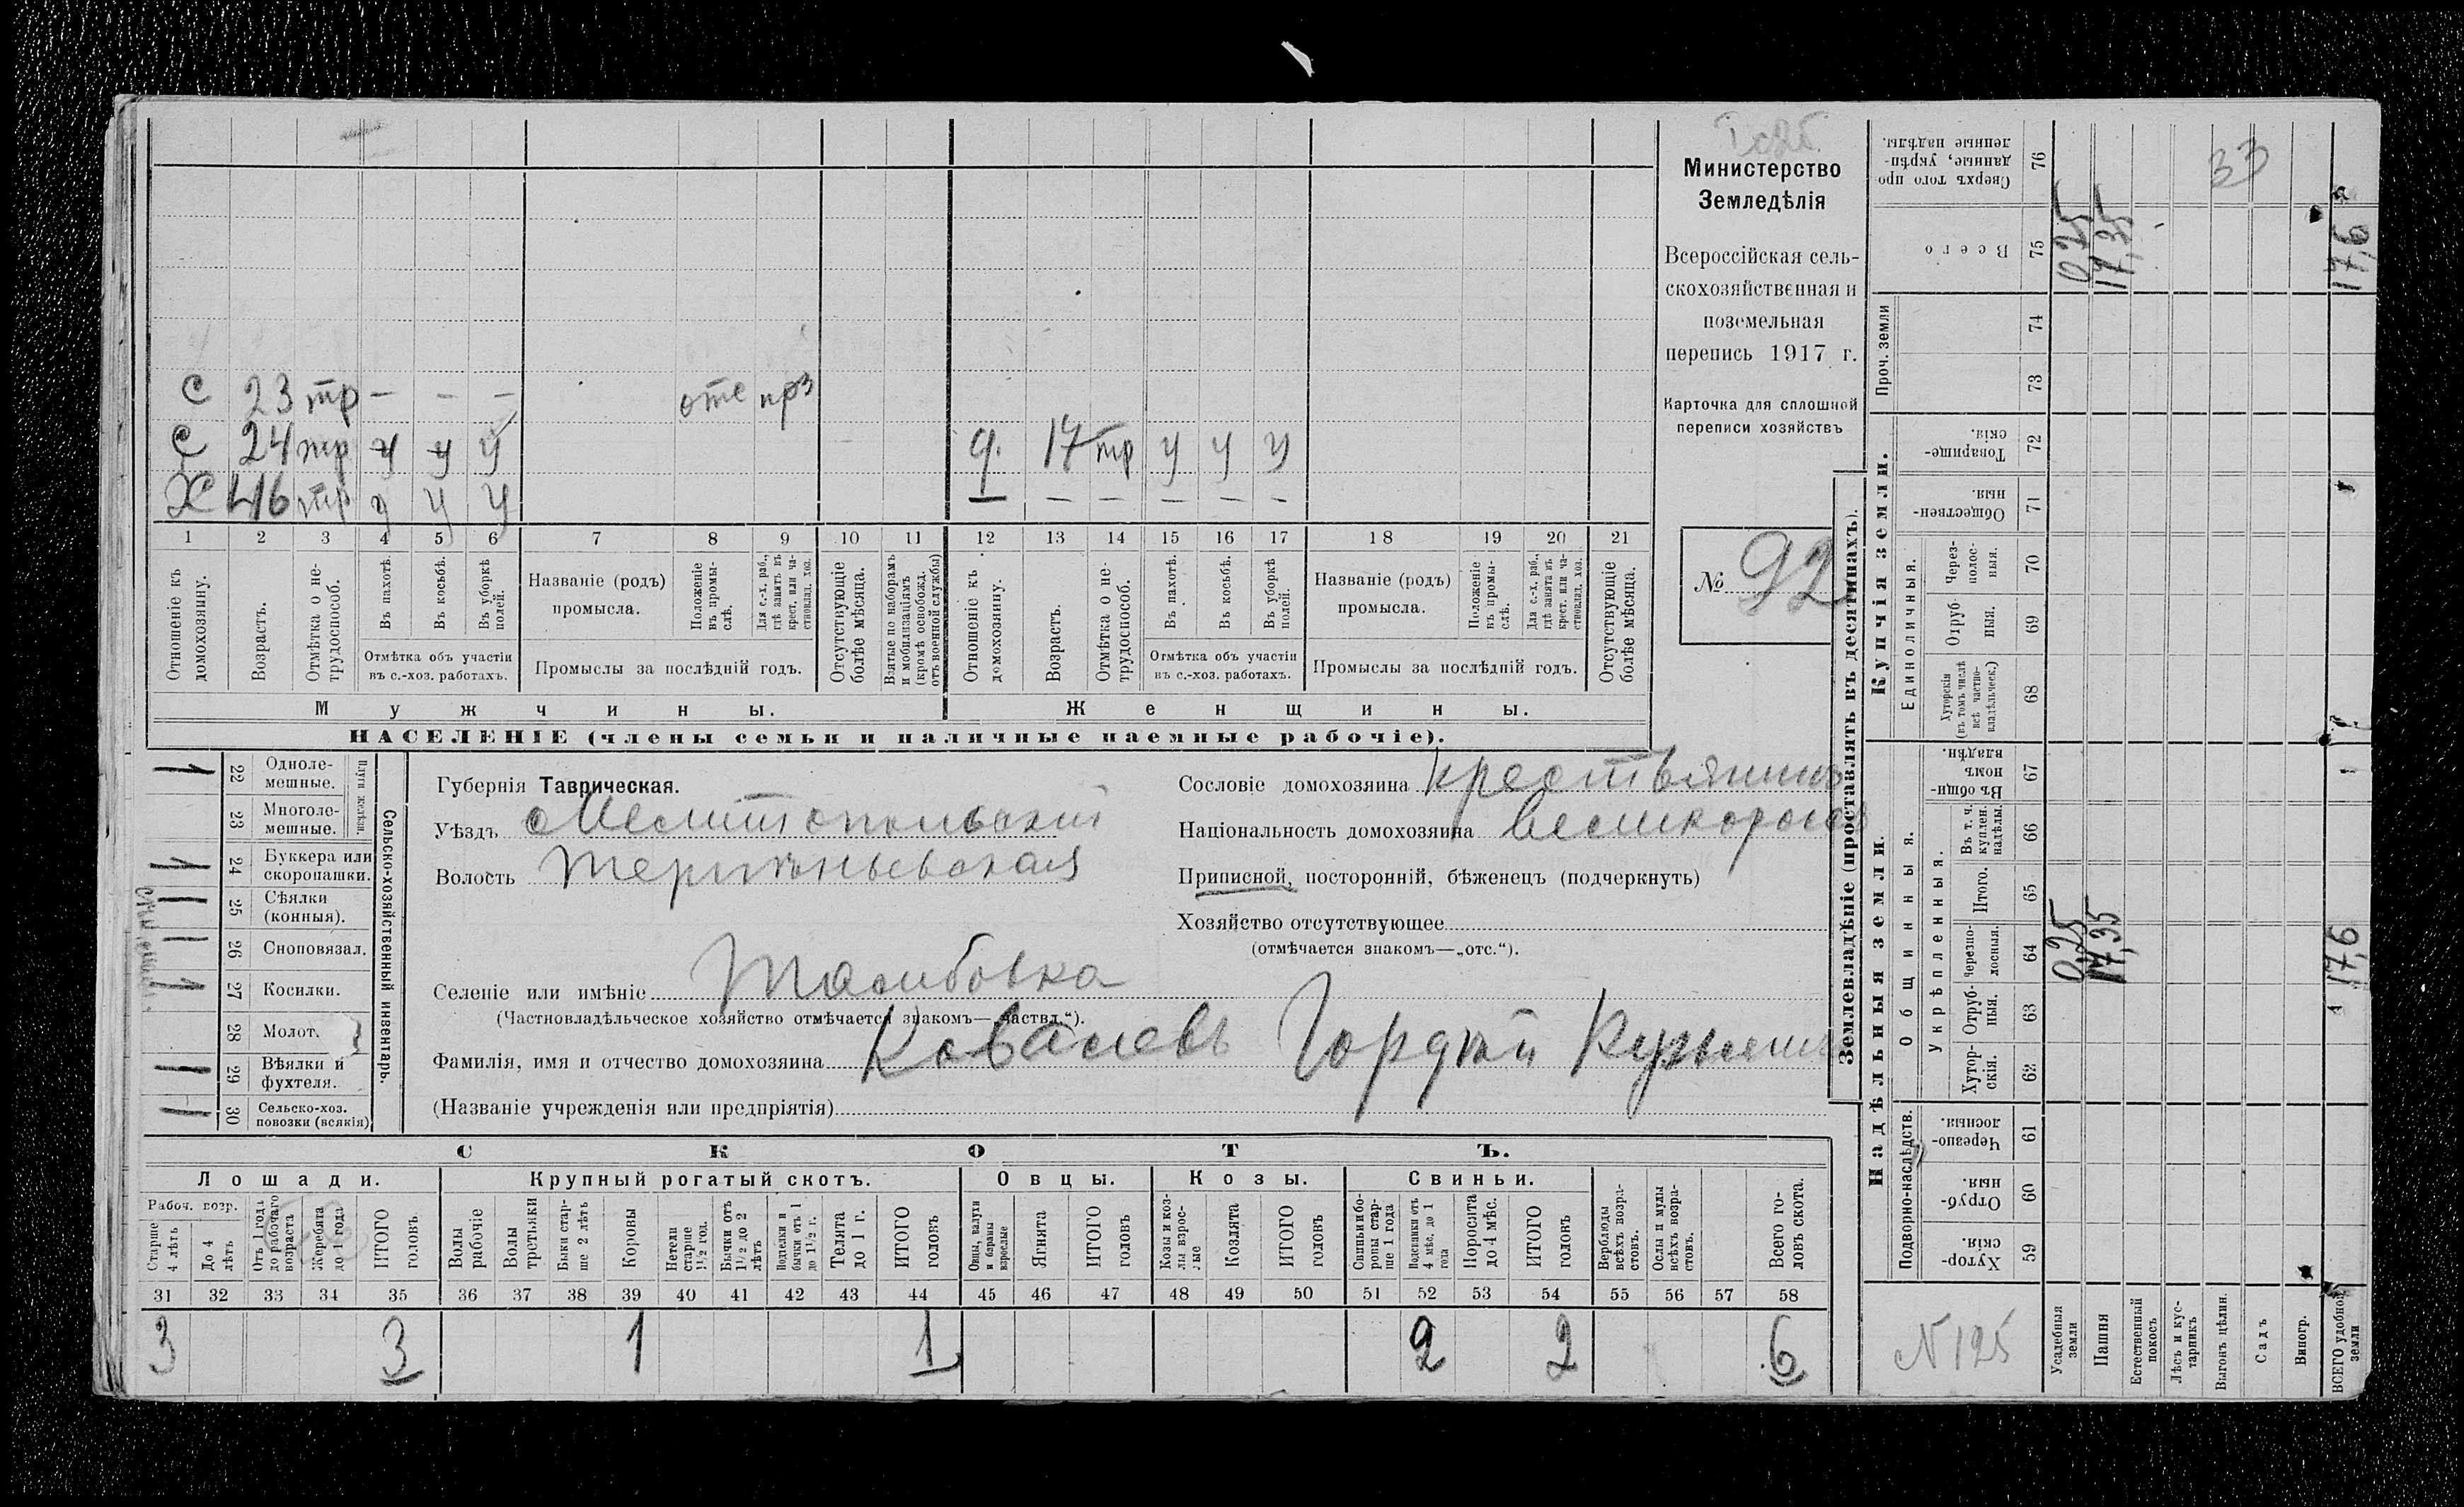 Министерство
Земледѣлія
Всероссійская сель-
скохозяйственная и
поземельная
перепись 1917 г.
Карточка для сплошной
переписи хозяйствъ
№ 92
С 23 тр — — — отс
С 24 тр у у у
Х 46 тр у у у
17 тр у у у
— — — — — —
1 2 3 4 5 6 7 8 9 10 11 12 13 14 15 16 17 18 19 20 21
Отношеніе къ домохозяину.
Возрастъ.
Отмѣтка о не-трудоспособ.
Въ пахотѣ.
Въ косьбѣ.
Въ уборкѣ полей.
Отмѣтка объ участіи
въ с.-хоз. работахъ.
Названіе (родъ)
промысла.
Положеніе въ промы-слѣ.
Для с.-х. раб., гдѣ занятъ въ крест. или ча-стновлад. хоз.
Промыслы за послѣдній годъ.
Отсутствующіе болѣе мѣсяца.
Взятые по наборамъ и мобилизаціямъ (кромѣ освобожд. отъ военной службы)
Отношеніе къ домохозяину.
Возрастъ.
Отмѣтка о не-трудоспособ.
Въ пахотѣ.
Въ косьбѣ.
Въ уборкѣ полей.
Отмѣтка объ участіи
въ с.-хоз. работахъ.
Названіе (родъ)
промысла.
Положеніе въ промы-слѣ.
Для с.-х. раб., гдѣ занята въ крест. или ча-стновлад. хоз.
Промыслы за послѣдній годъ.
Отсутствующіе болѣе мѣсяца.
Мужчины.
Женщины.
НАСЕЛЕНІЕ (члены семьи и наличные наемные рабочіе).
Сельско-хозяйственный инвентарь.
Плуги желѣзн.
22 Однолемешные.
23 Многолемешные.
24 Буккера или скоропашки.
25 Сѣялки (конныя).
26 Сноповязал.
27 Косилки.
28 Молот.
29 Вѣялки и фухтеля.
30 Сельско-хоз. повозки (всякія)
Губернія Таврическая.
Уѣздъ Мелитопольскій
Волость
Сословіе домохозяина крестьянинъ
Національность домохозяина великороссъ
Приписной, посторонній, бѣженецъ (подчеркнуть)
Хозяйство отсутствующее
(отмѣчается знакомъ—„отс.“).
Селеніе или имѣніе
(Частновладѣльческое хозяйство отмѣчается знакомъ—„частвл.“).
Фамилія, имя и отчество домохозяина Ковалевъ Гордѣй
(Названіе учрежденія или предпріятія)
СКОТЪ.
Лошади. Крупный рогатый скотъ. Овцы. Козы. Свиньи.
Рабоч. возр.
Старше 4 лѣтъ
До 4 лѣтъ
Отъ 1 года до рабочаго возраста
Жеребята до 1 года
ИТОГО головъ
Волы рабочіе
Волы третьяки
Быки стар-ше 2 лѣтъ
Коровы
Нетели старше 1½ год.
Бычки отъ 1½ до 2 лѣтъ
Телята до 1 г.
ИТОГО головъ
Овцы, валухи и бараны взрослые
Ягнята
ИТОГО головъ
Козы и коз-лы взрос-лые
Козлята
ИТОГО головъ
Свиньи и бо-ровы стар-ше 1 года
Подсвинки отъ 4 мѣс. до 1 года
Поросята до 4 мѣс.
ИТОГО головъ
Верблюды всѣхъ возра-стовъ.
Ослы и мулы всѣхъ возра-стовъ.
Всего го-ловъ скота.
31 32 33 34 35 36 37 38 39 40 41 42 43 44 45 46 47 48 49 50 51 52 53 54 55 56 57 58
3 3 1 1 2 2 6
Землевладѣніе (проставлять въ десятинахъ).
Надѣльныя земли.
Купчія земли.
Проч. земли
Подворно-наслѣдств.
Общинныя.
Укрѣпленныя.
Единоличныя.
59 Хутор-скія.
60 Отруб-ныя.
61 Черезпо-лосныя.
62 Хутор-скія.
63 Отруб-ныя.
64 черезпо-лосныя.
65 Итого.
66 Въ т. ч. куплен. надѣлы.
67 Въ общи-номъ владѣн.
68 Хуторскія (въ томъ числѣ всѣ частно-владѣльческ.)
69 Отруб-ныя.
70 Через-полос-ныя.
71 Обществен-ныя.
72 Товарище-скія.
73
74
75 Всего
76 Сверхъ того про-данные, укрѣп-ленные надѣлы.
Усадебныя земли
0,25 0,25
Пашня
17,35 17,35
Естественный покосъ
Лѣсъ и кус-тарникъ
Выгонъ цѣлин.
Садъ
Виногр.
ВСЕГО удобной земли
17,6 17,6
N 125
33